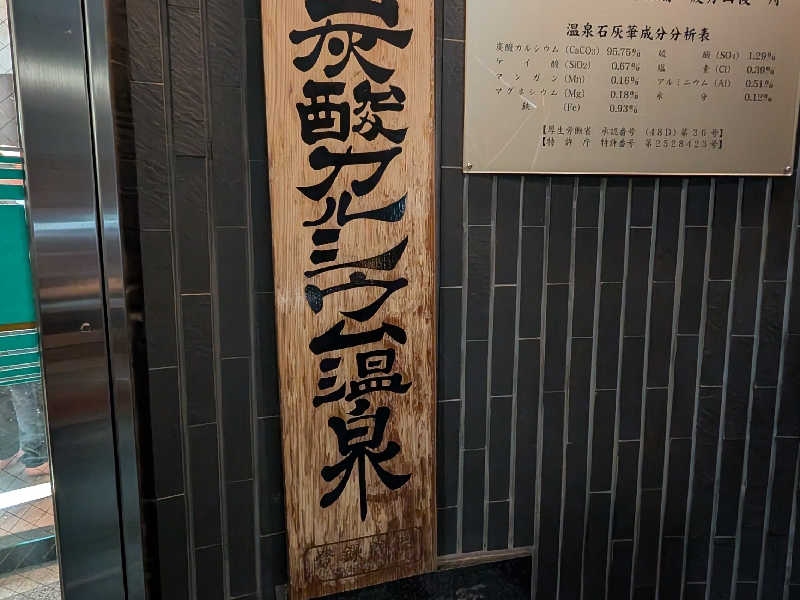 炭酸カルシウム温泉
温泉石灰華成分分析表
炭酸カルシウム (CaCO₃) 95.75% 硫酸 (SO₄) 1.29%
ケイ酸 (SiO₂) 0.67% 塩素 (Cl) 0.39%
マンガン (Mn) 0.16% アルミニウム (Al) 0.51%
マグネシウム (Mg) 0.18% 水分 0.12%
鉄 (Fe) 0.93%
【厚生労働省 承認番号 (48D)第36号】
【特許庁 特許番号 第2528423号】